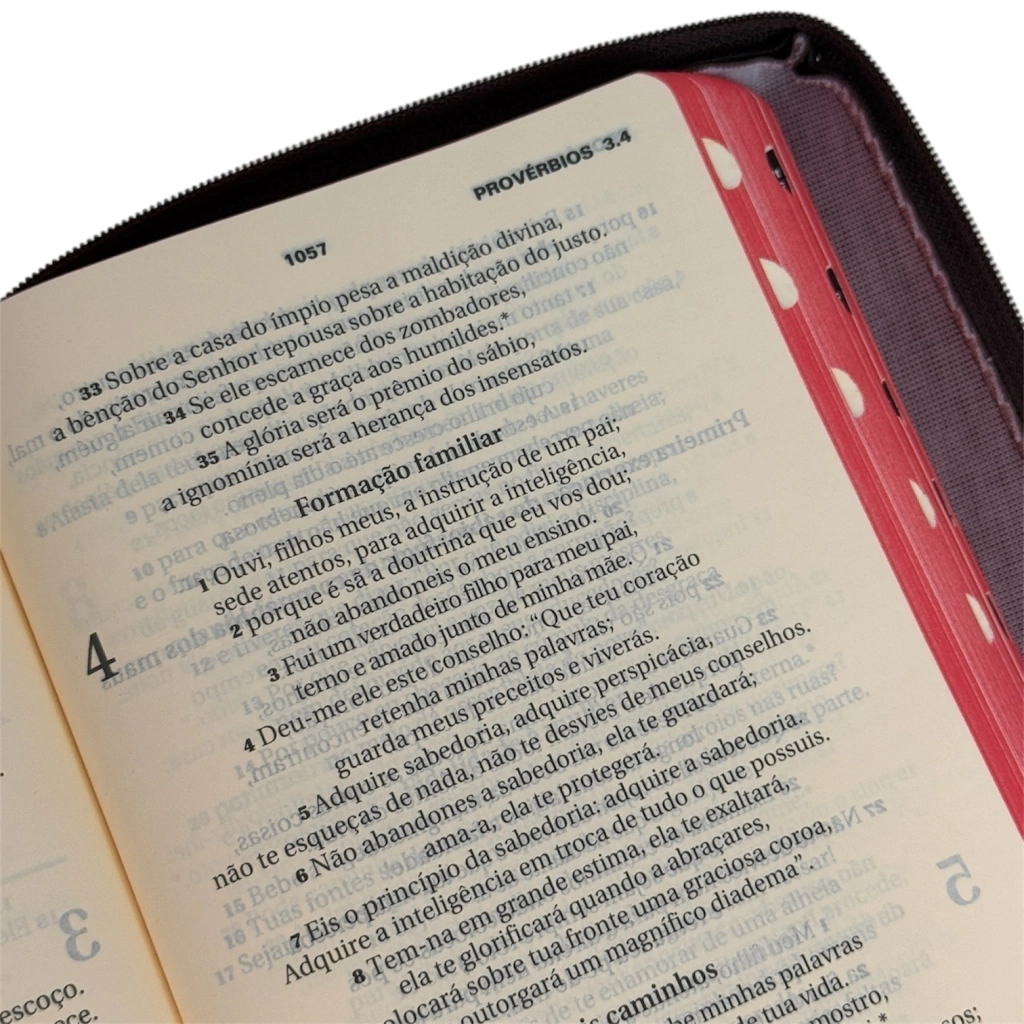 PROVÉRBIOS 3.4
1057
33 Sobre a casa do ímpio pesa a maldição divina,
a bênção do Senhor repousa sobre a habitação do justo.
34 Se ele escarnece dos zombadores,
concede a graça aos humildes.*
35 A glória será o prêmio do sábio,
a ignomínia será a herança dos insensatos.
Formação familiar
4
1 Ouvi, filhos meus, a instrução de um pai;
sede atentos, para adquirir a inteligência,
2 porque é sã a doutrina que eu vos dou;
não abandoneis o meu ensino.
3 Fui um verdadeiro filho para meu pai,
terno e amado junto de minha mãe.
4 Deu-me ele este conselho: “Que teu coração
retenha minhas palavras;
guarda meus preceitos e viverás.
5 Adquire sabedoria, adquire perspicácia,
não te esqueças de nada, não te desvies de meus conselhos.
6 Não abandones a sabedoria, ela te guardará;
ama-a, ela te protegerá.
7 Eis o princípio da sabedoria: adquire a sabedoria.
Adquire a inteligência em troca de tudo o que possuis.
8 Tem-na em grande estima, ela te exaltará,
ela te glorificará quando a abraçares,
olocará sobre tua fronte uma graciosa coroa,
outorgará um magnífico diadema”.
caminhos
be minhas palavras
de tua vida.
mostro,
escoço.